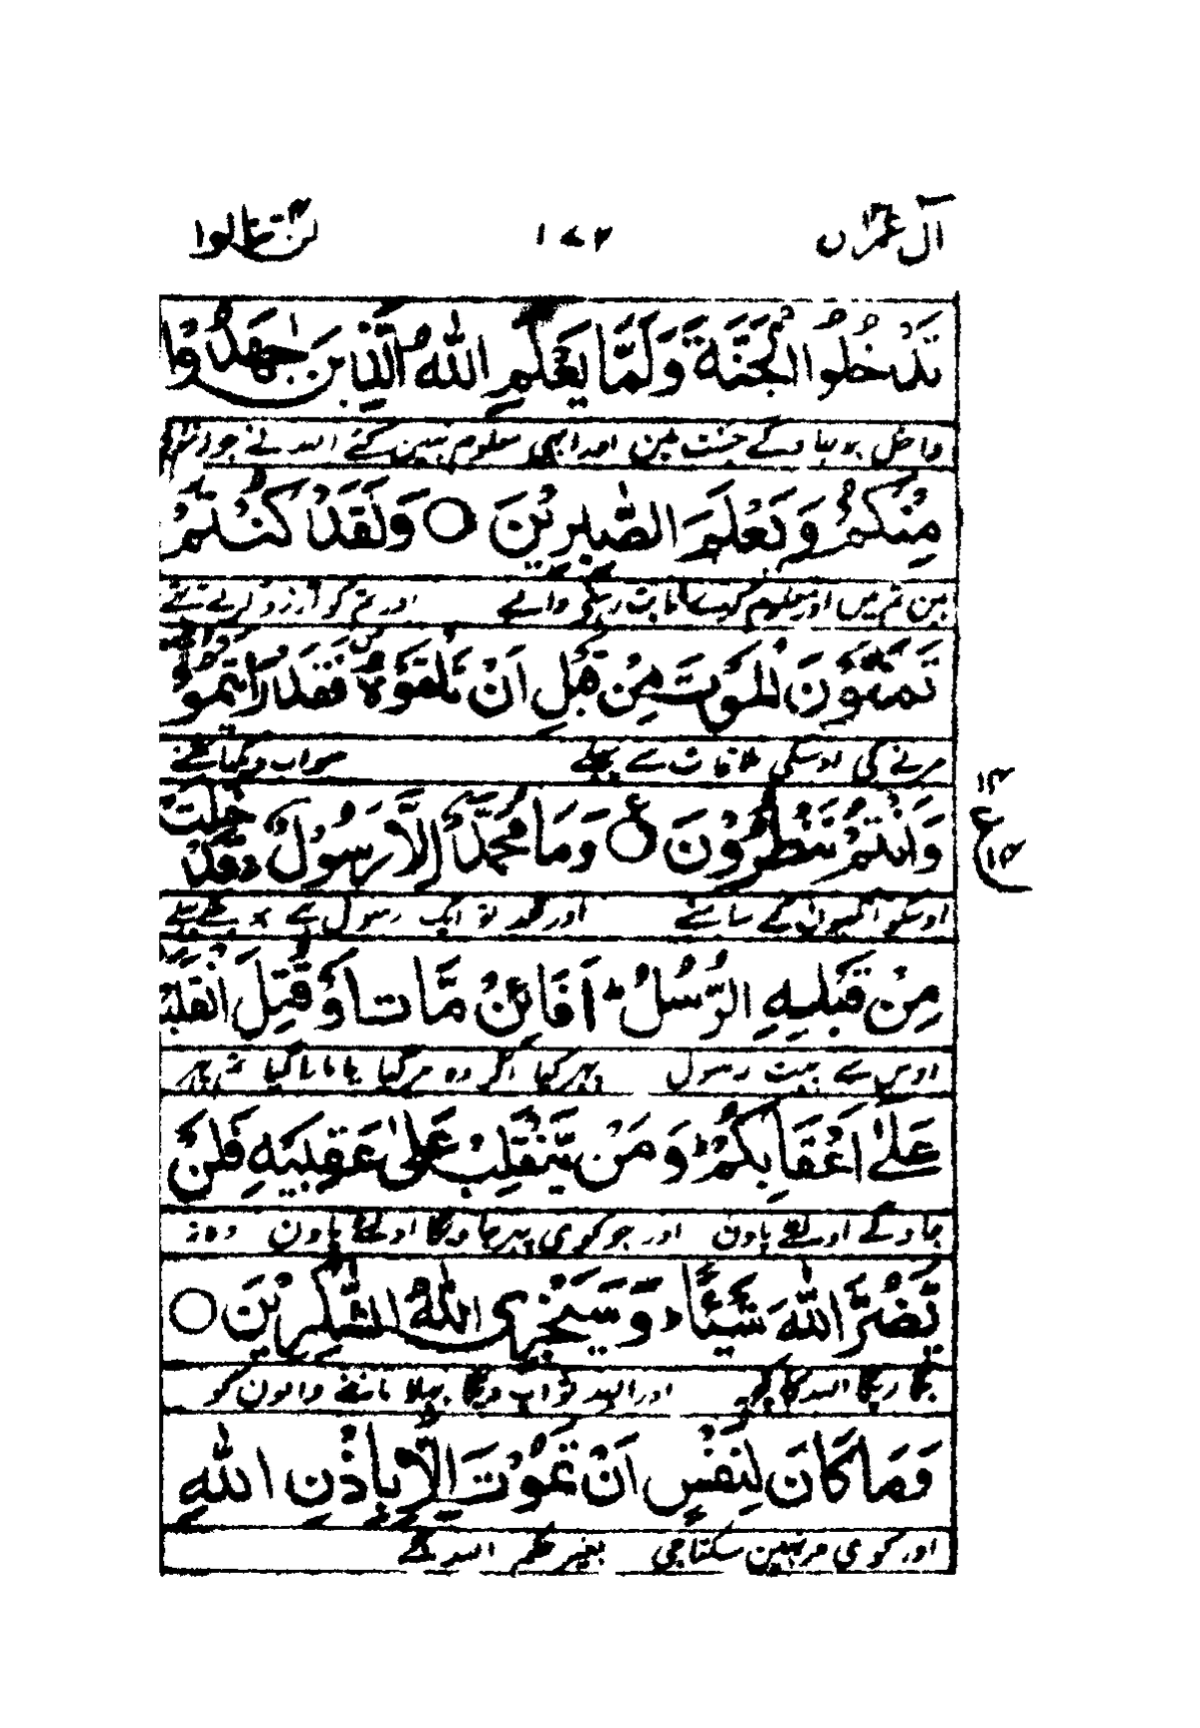 آل عمرٰن ١٧٢ لن تنالوا
تَدْخُلُوا الْجَنَّةَ وَلَمَّا يَعْلَمِ اللّٰهُ الَّذِيْنَ جٰهَدُوْا
داخل ہو جاوگے جنت مین اور ابھی معلوم نہین کئے اللہ نے جو
مِنْكُمْ وَيَعْلَمَ الصّٰبِرِيْنَ ○ وَلَقَدْ كُنْتُمْ
ہین تم میں اور معلوم کرے ثابت رہنے والے اور تم تو آرزو کرتے تھے
تَمَنَّوْنَ الْمَوْتَ مِنْ قَبْلِ اَنْ تَلْقَوْهُ ۠ فَقَدْ رَاَيْتُمُوْهُ
مرنے کی اوسکی ملاقات سے پہلے سو اب دیکھا تمنے
وَاَنْتُمْ تَنْظُرُوْنَ ○ ع وَمَا مُحَمَّدٌ اِلَّا رَسُوْلٌ ۚ قَدْ خَلَتْ
١٤
ع
١٥
اوسکو آنکھون کے سامنے اور محمد تو ایک رسول ہے × پہلے
مِنْ قَبْلِهِ الرُّسُلُ ؕ اَفَا۟ئِنْ مَّاتَ اَوْ قُتِلَ انْقَلَبْ
اوس سے بہت رسول پہر کیا اگر وہ مر گیا یا مارا گیا تم پہر
عَلٰٓى اَعْقَابِكُمْ ؕ وَمَنْ يَّنْقَلِبْ عَلٰى عَقِبَيْهِ فَلَنْ
جاوگے اولٹے پاون اور جو کوی پہر جاویگا اولٹے پاون وہ نہ
يَّضُرَّ اللّٰهَ شَيْئًا ؕ وَسَيَجْزِى اللّٰهُ الشّٰكِرِيْنَ ○
بگاڑیگا اللہ کا کچھ اور اللہ ثواب دیگا بھلا ماننے والون کو
وَمَا كَانَ لِنَفْسٍ اَنْ تَمُوْتَ اِلَّا بِاِذْنِ اللّٰهِ
اور کوی مر نہین سکتا جی بغیر حکم اللہ کے